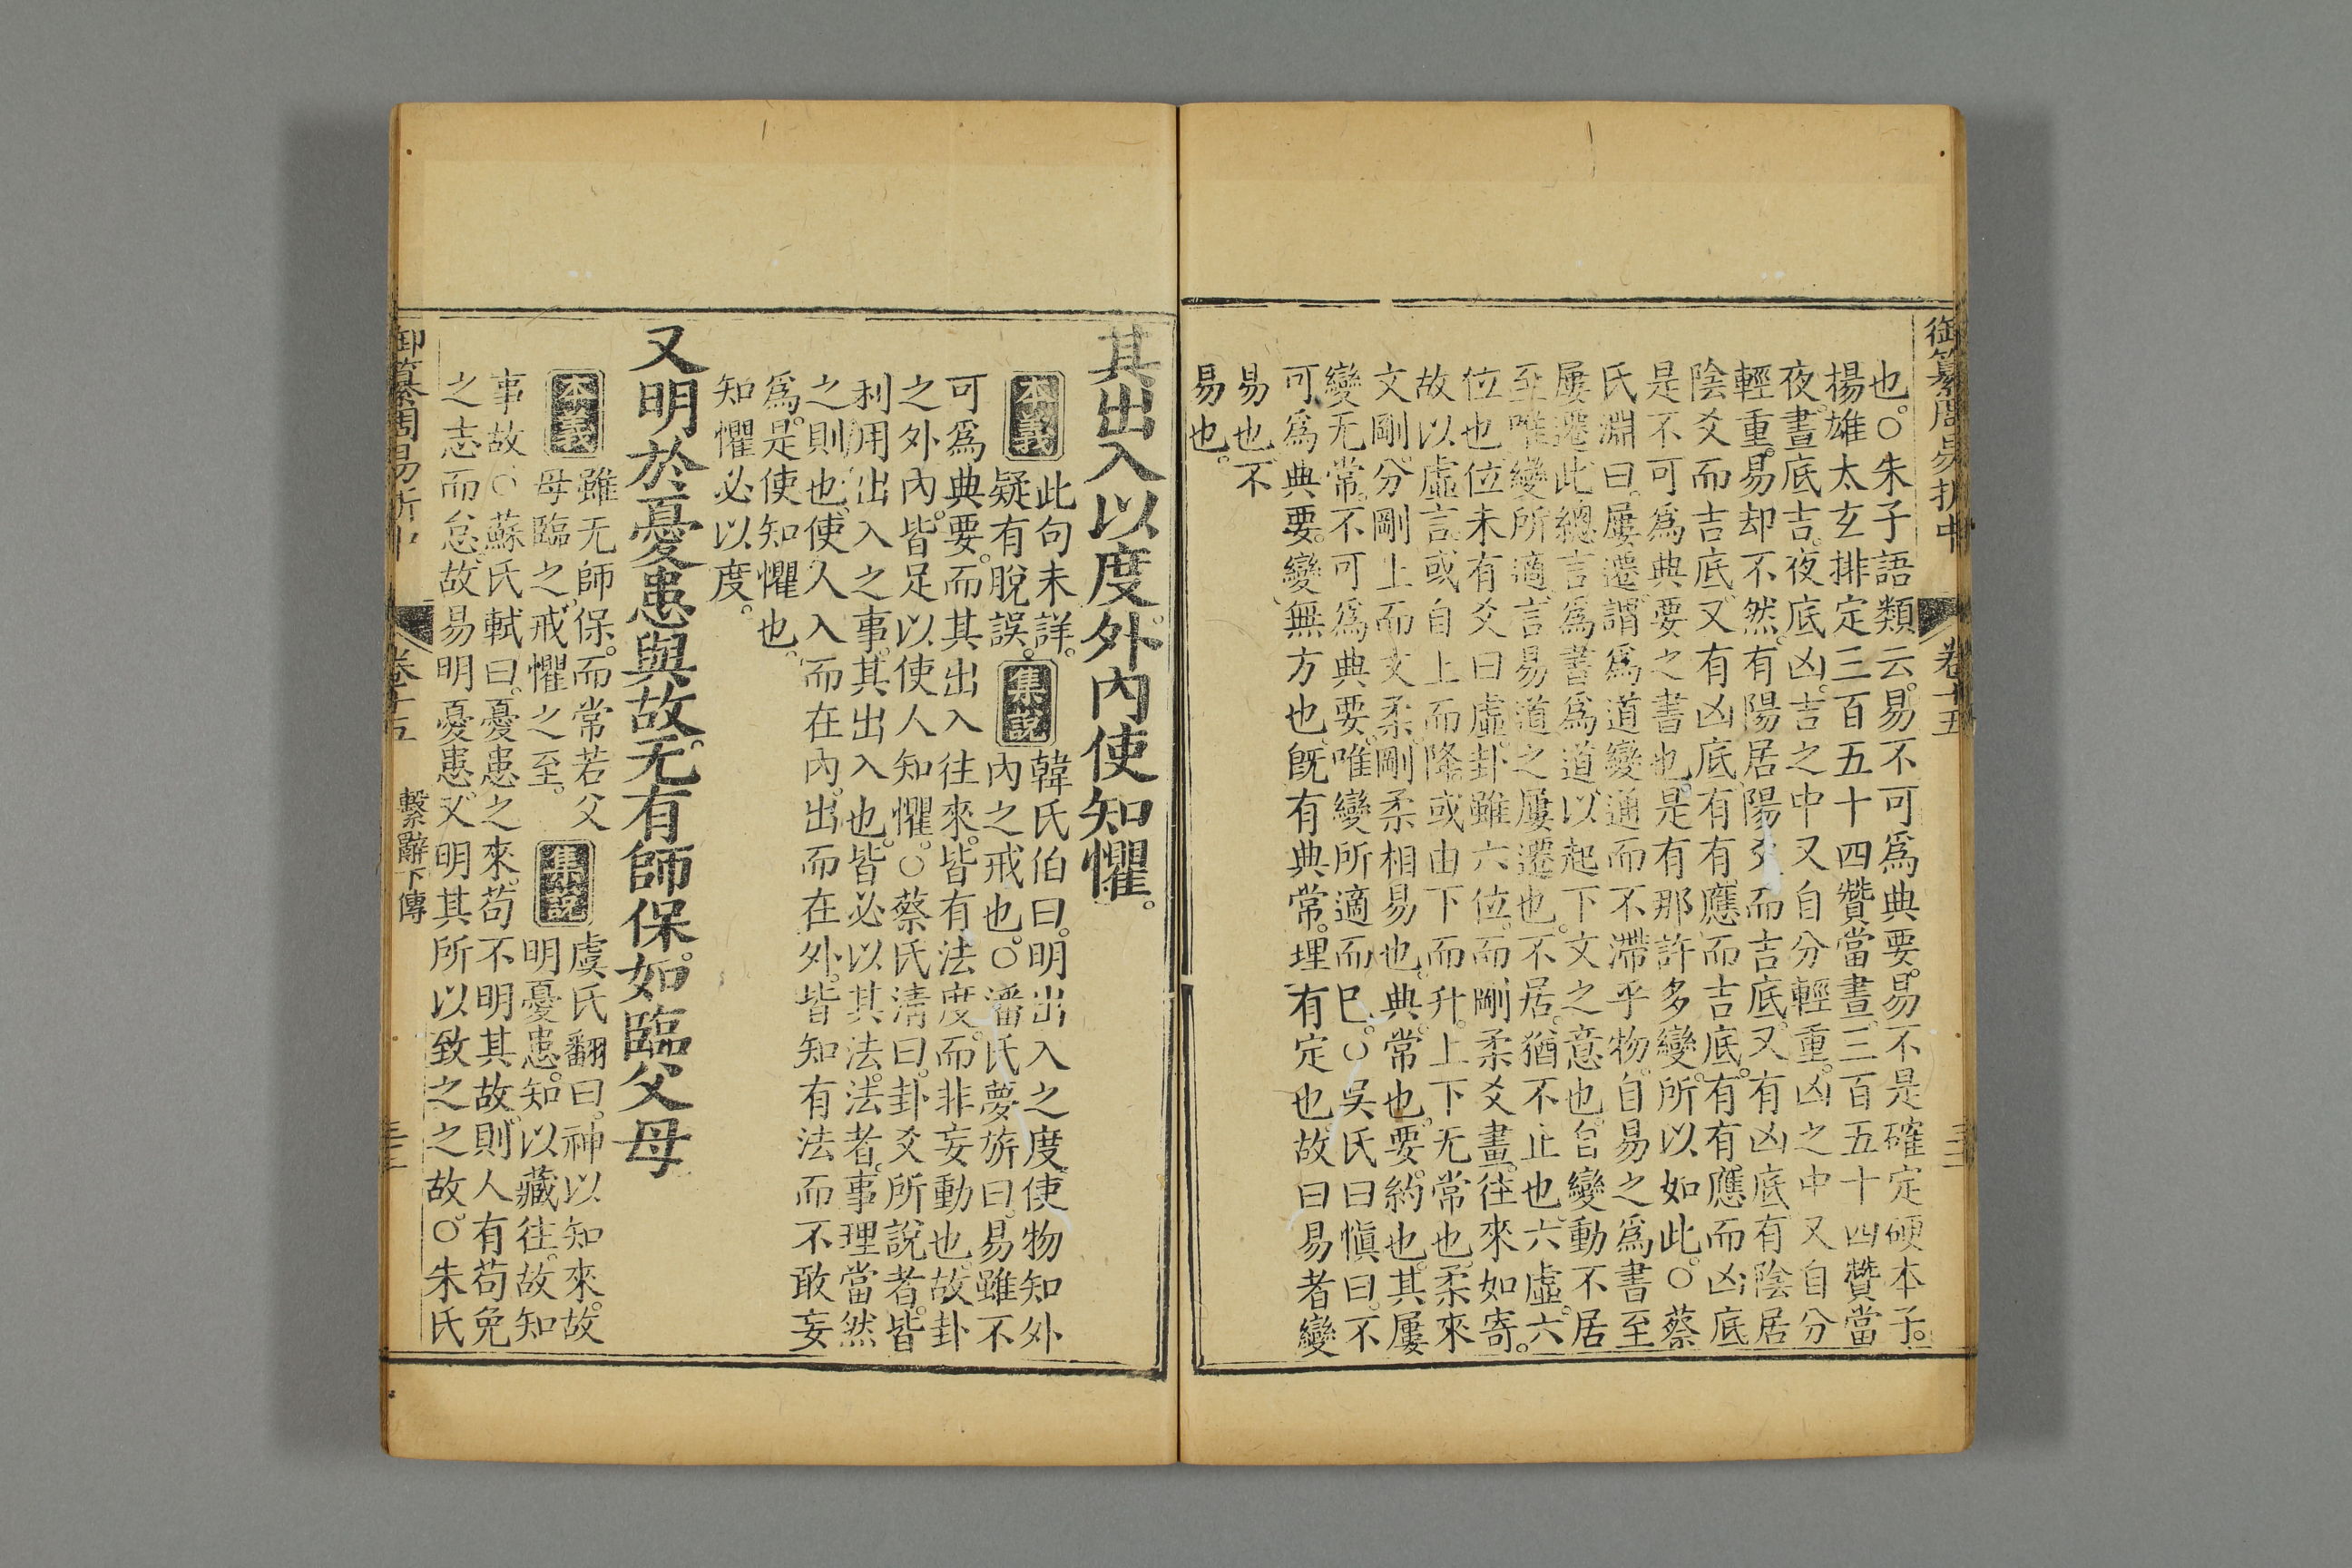 御纂周易折中
卷十五
也。○朱子語類云。易不可爲典要。易不是確定硬本子。
揚雄太玄排定三百五十四贊當晝。三百五十四贊當
夜。晝底吉。夜底凶。吉之中又自分輕重。凶之中又自分
輕重。易却不然。有陽居陽爻而吉底。又有凶底。有陰居
陰爻而吉底。又有凶底。有有應而吉底。有有應而凶底。
是不可爲典要之書也。是有那許多變。所以如此。○蔡
氏淵曰。屢遷。謂爲道變通而不滯乎物。自易之爲書至
屢遷。此總言爲書爲道。以起下文之意也。自變動不居
至唯變所適。言易道之屢遷也。不居。猶不止也。六虛。六
位也。位未有爻曰虛。卦雖六位。而剛柔爻畫。往來如寄。
故以虛言。或自上而降。或由下而升。上下无常也。柔來
文剛。分剛上而文柔。剛柔相易也。典。常也。要。約也。其屢
變无常。不可爲典要。唯變所適而已。○吳氏曰愼曰。不
可爲典要。變無方也。旣有典常。理有定也。故曰易者變
易也。不
易也。
其出入以度。外內使知懼。
本義
此句未詳。
疑有脫誤。
集說
韓氏伯曰。明出入之度。使物知外
內之戒也。○潘氏夢旂曰。易雖不
可爲典要。而其出入往來。皆有法度。而非妄動也。故卦
之外內。皆足以使人知懼。○蔡氏淸曰。卦爻所說者。皆
利用出入之事。其出入也。皆必以其法。法者。事理當然
之則也。使人入而在內。出而在外。皆知有法而不敢妄
爲。是使知懼也。
知懼必以度。
又明於憂患與故。无有師保。如臨父母
本義
雖无師保。而常若父
母臨之。戒懼之至。
集說
虞氏翻曰。神以知來。故
明憂患。知以藏往。故知
事故。○蘇氏軾曰。憂患之來。苟不明其故。則人有苟免
之志而怠。故易明憂患。又明其所以致之之故。○朱氏
御纂周易折中
卷十五
繫辭下傳